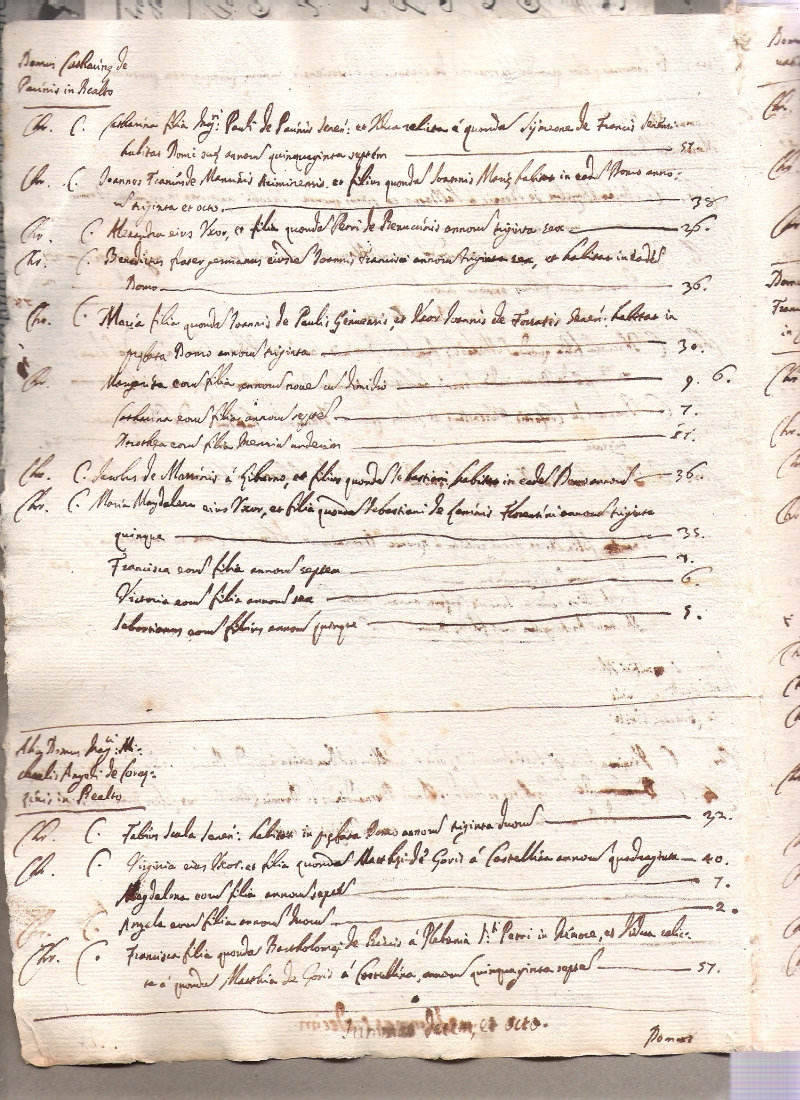 Domus Catharinę de
Paulinis in Realto
Chr. C. Catharina filia Mag.ri Pauli de Paulinis Senen: et Vidua relicta á quonda Symeone de Francis Senensi
habitas Domi suę annorum quinquaginta septem 57.
Chr. C. Joannes Franc.us de Manuciis Ariminensis, et filius quondam Joannis Marię habitat in ead. Domo anno:
rum triginta et octo. 38
Chr. C. Alexandra eius Uxor, et filia quonda Petri de Benuccinis annorum triginta sex 36.
Chr. C. Benedictus frater germanus eiusdem Joannis Francisci annorum triginta sex, et habitat in eadem
Domo. 36.
Chr. C. Maria filia quonda Joannis de Paulis Genuensis, et Uxor Joannis de Ferratis Senen: habitat in
pręfata Domo annorum triginta 30.
Chr. Margarita eorum filia annorum novem cum dimidio 9. 6.
Catharina eorum filia annorum septem 7.
Dorothea eorum filia undecim 11.
Chr. C. Jacobus de á et filius quonda Sebastiani habitat in eadem Domo annorum 36.
Chr. C. Maria Magdalena eius Uxor, et filia quonda Sebastiani de Florentini annorum triginta
quinque 35.
Francisca eorum filia annorum septem 7.
Victoria eorum filia annorum sex 6.
Sebastianus eorum filius annorum quinque 5.
Alia Domus Mag.ci Mi:
chaelis Angeli de
in Realto
Chr. C. Fabius Scala Senen: habitat in pręfata Domo annorum triginta duorum 32.
Chr. C. Virginia eius Uxor, et filia quonda Matthęi de Goris á Castellina annorum quadraginta 40.
Magdalena eorum filia annorum septem 7.
Chr. C. Angela eorum filia annorum duorum 2.
Chr. C. Francisca filia quonda Bartholomęi de á Plebania S.ti Petri in et Vidua relic:
ta á quonda Matthia de Goris á Castellina, annorum quinquaginta septem 57.
Summa decem, et octo.
Domus